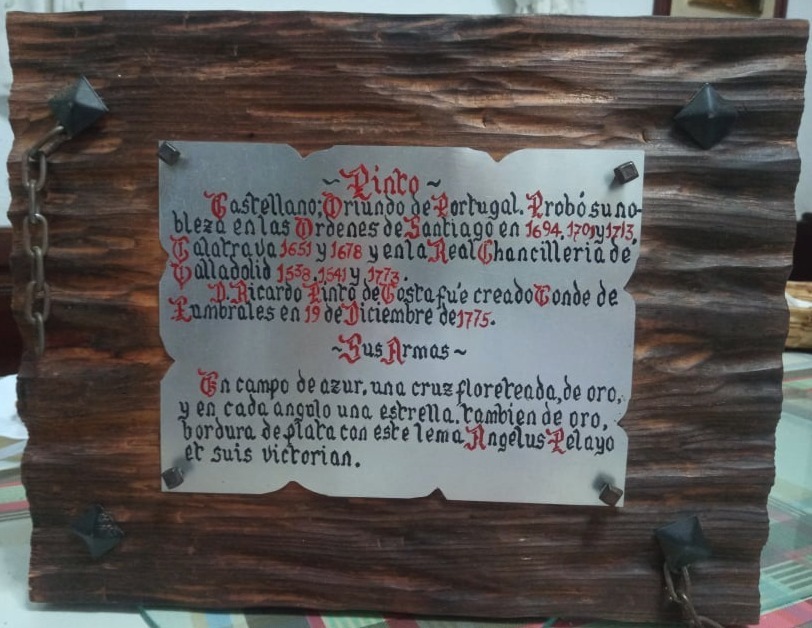 ~Pinto~
Castellano; Oriundo de Portugal. Probó su no-
bleza en las Ordenes de Santiago en 1694, 1701 y 1713,
Calatrava 1651 y 1678 y en la Real Chancilleria de
Valladolid 1538, 1541 y 1773.
D. Ricardo Pinto de Costa fué creado Conde de
Lumbrales en 19 de Diciembre de 1775.
~Sus Armas~
En campo de azur, una cruz floreteada, de oro,
y en cada angulo una estrella, tambien de oro,
bordura de plata con este lema Angelus Pelayo
et suis victorian.